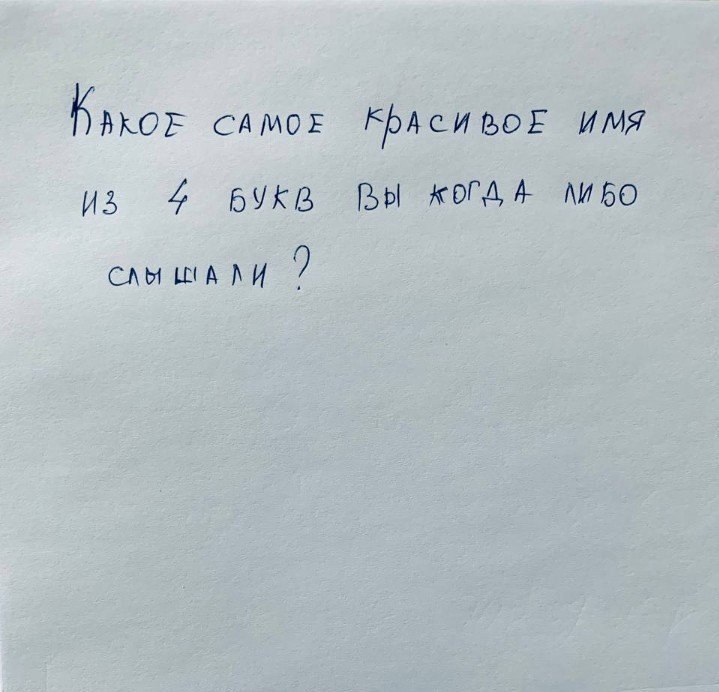 Какое самое красивое имя
из 4 букв вы когда либо
слышали?